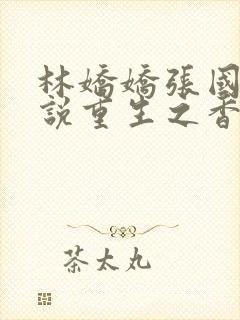 林嬌嬌張國
說重生之香
茶太丸